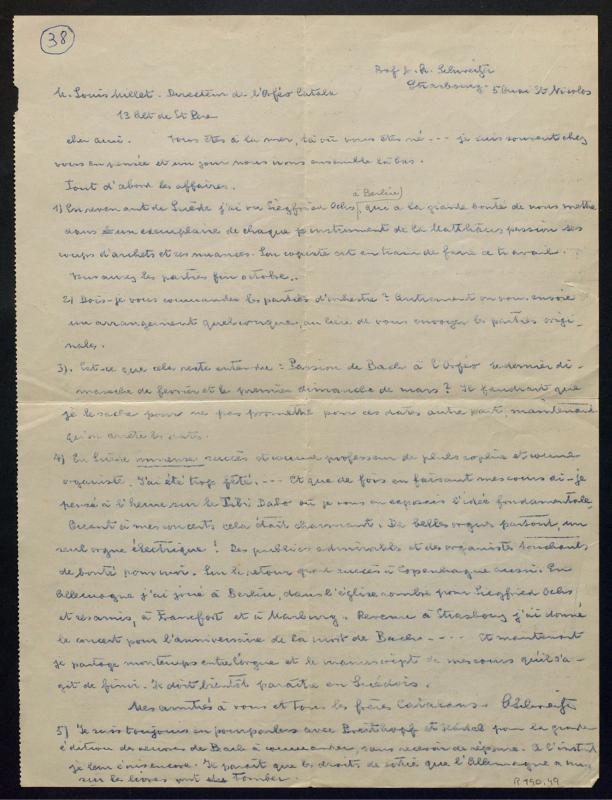 38
Prof. Dr. A. Schweitzer
Strasbourg. 5 Quai St Nicolas
M. Louis Millet. Directeur de l'Orféo Català
13 Alt de St Pere
cher ami. Vous êtes à la mer, là où vous êtes né --- je suis souvent chez
vous en pensée et un jour nous irons ensemble là bas.
Tout d'abord les affaires.
à Berlin
1) En revenant de Suède j'ai vu Siegfried Ochs, qui a la grande bonté de nous mettre
dans un exemplaire de chaque instrument de la Matthäus passion ses
coups d'archets et ses nuances. Son copiste est en train de faire ce travail.
Vous aurez les parties fin octobre.
2) Dois-je vous commander les parties d'orchestre? Autrement on vous envoie
un arrangement quelconque, au lieu de vous envoyer les parties origi-
nales.
3). Est-ce que cela reste entendu: Passion de Bach à l'Orféo le dernier di-
manche de février et le premier dimanche de mars? Il faudrait que
je le sache pour ne pas promettre pour ces dates autre part, maintenant
qu'on arrête les dates.
4) En Suède immense succès et comme professeur de philosophie et comme
organiste. J'ai été trop fêté. --- Et que de fois en faisant mes cours ai-je
pensé à l'heure sur le Tibi Dabo où je vous en exposais l'idée fondamentale.
Quant à mes concerts cela était charmant. De belles orgues partout, un
seul orgue électrique! Des publics admirables et des organistes touchants
de bonté pour moi. Sur le retour grand succès à Copenhague aussi. En
Allemagne j'ai joué à Berlin, dans l'église sombre pour Siegfried Ochs
et ses amis, à Francfort et à Marburg. Revenu à Strasbourg j'ai donné
le concert pour l'anniversaire de la mort de Bach. --- Et maintenant
je partage mon temps entre l'orgue et le manuscript de mes cours qu'il s'a-
git de finir. Il doit bientôt paraître en Suédois.
Mes amitiés à vous et tous les frères Catalans. ASchweitzer
5) Je suis toujours en pourparlers avec Breitkopf et Härtel pour la grande
édition des œuvres de Bach à commander, sans recevoir de réponse. A l'instant
je leur écris encore. Il paraît que les droits de sortie que l'Allemagne a mis
sur les livres vont tomber.
R 190.49